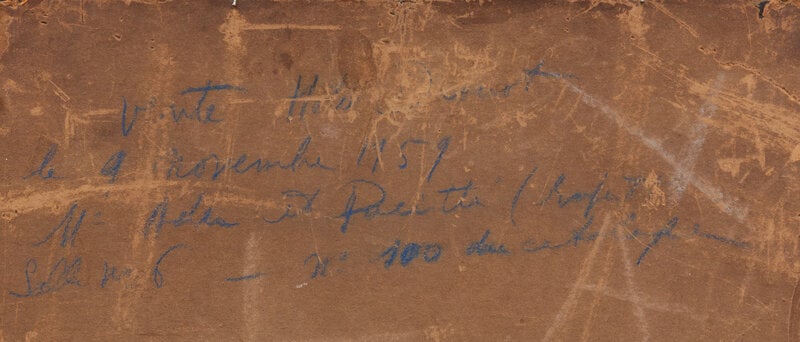 Vente Hôtel Drouot
le 9 novembre 1959
Me Ader et (
Salle No 6 — No 100 du catalogue